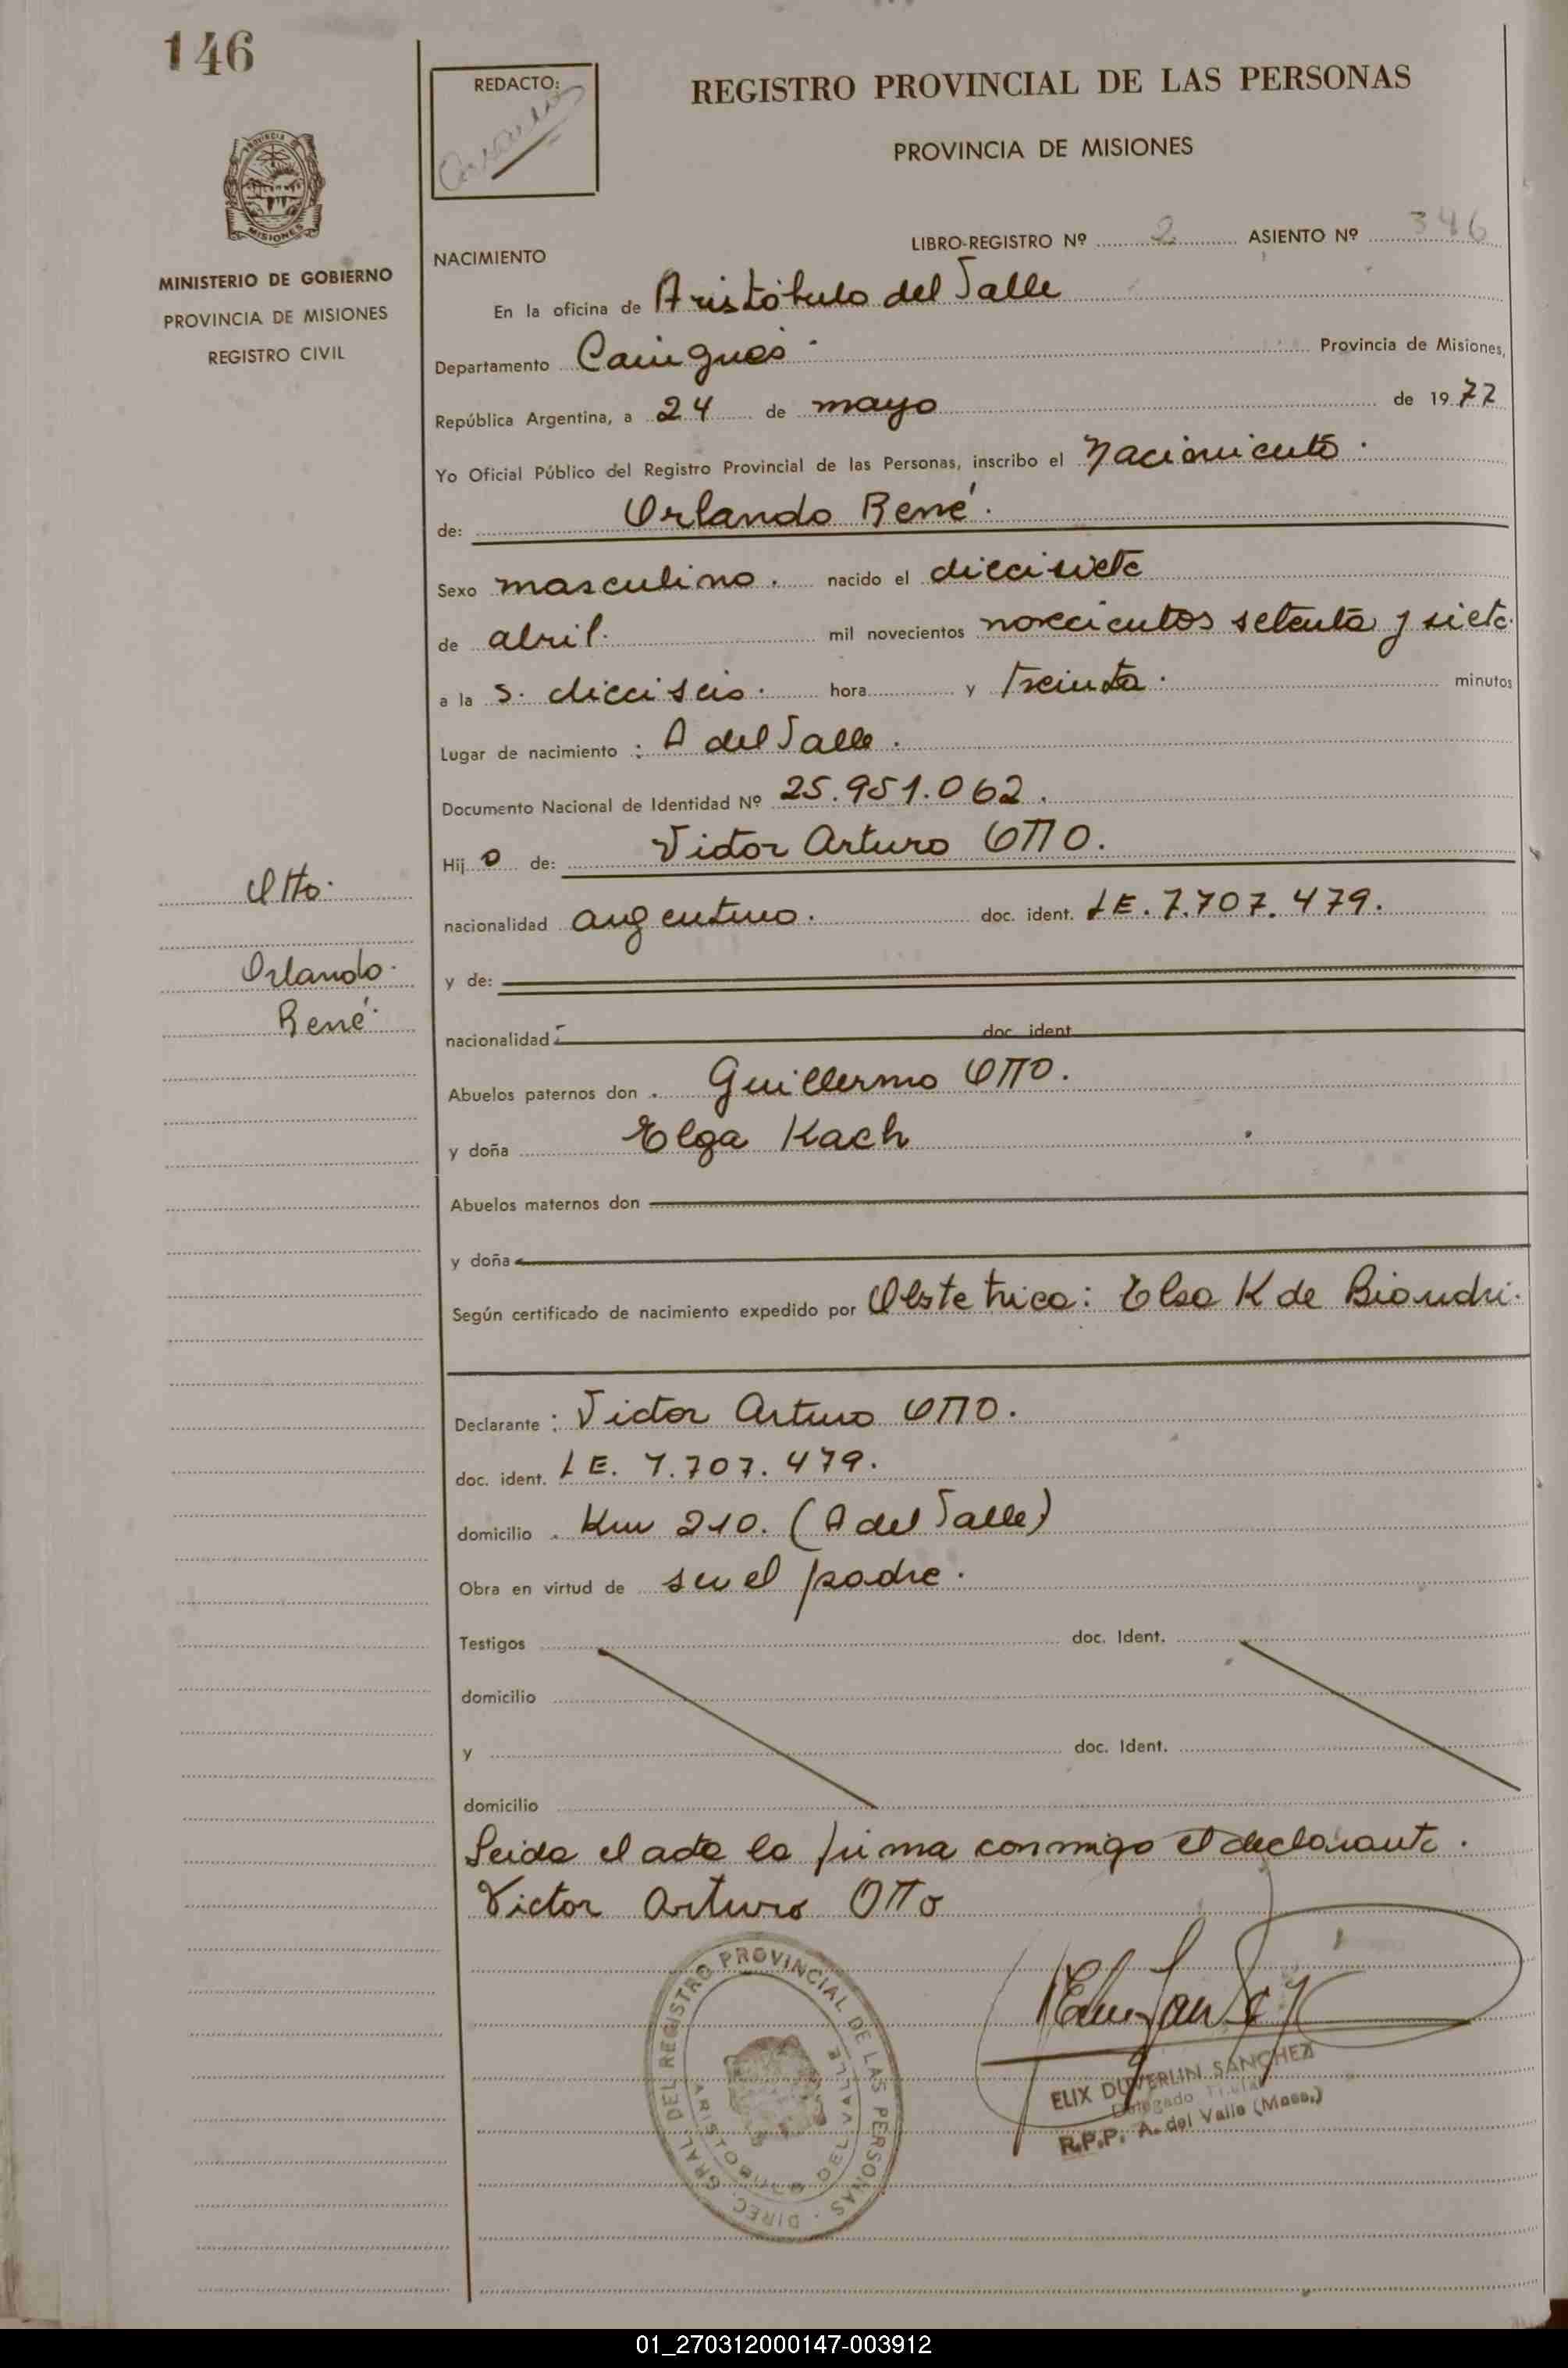 146
REDACTO:
REGISTRO PROVINCIAL DE LAS PERSONAS
PROVINCIA DE MISIONES
PROVINCIA
MISIONES
MINISTERIO DE GOBIERNO
PROVINCIA DE MISIONES
REGISTRO CIVIL
LIBRO-REGISTRO Nº 2 ASIENTO Nº 346
NACIMIENTO
En la oficina de Aristóbulo del Valle
Departamento Cainguás Provincia de Misiones,
República Argentina, a 24 de mayo de 1977
Yo Oficial Público del Registro Provincial de las Personas, inscribo el Nacimiento.
de: Orlando René.
Sexo masculino. nacido el diecisiete
de abril. mil novecientos novecientos setenta y siete.
a la s. dieciseis. hora y treinta. minutos
Lugar de nacimiento: A del Valle.
Documento Nacional de Identidad Nº 25.951.062.
Hijo de: Victor Arturo OTTO.
Otto.
nacionalidad argentino. doc. ident. LE. 7.707.479.
Orlando.
y de:
René.
nacionalidad doc. ident.
Abuelos paternos don. Guillermo OTTO.
y doña Elga Kach
Abuelos maternos don
y doña
Según certificado de nacimiento expedido por Obstetrica: Elsa K de Biondri.
Declarante: Victor Arturo OTTO.
doc. ident. LE. 7.707.479.
domicilio. Km 210. (A del Valle)
Obra en virtud de ser el padre.
Testigos doc. Ident.
domicilio
y doc. Ident.
domicilio
Leida el acta la firma conmigo el declarante.
Victor Arturo OTTO
DIREC. GRAL. DEL REGISTRO PROVINCIAL DE LAS PERSONAS
ARISTOBULO DEL VALLE
ELIX DUVERLIN SANCHEZ
Delegado Titular
R.P.P. A. del Valle (Mnes.)
01_270312000147-003912